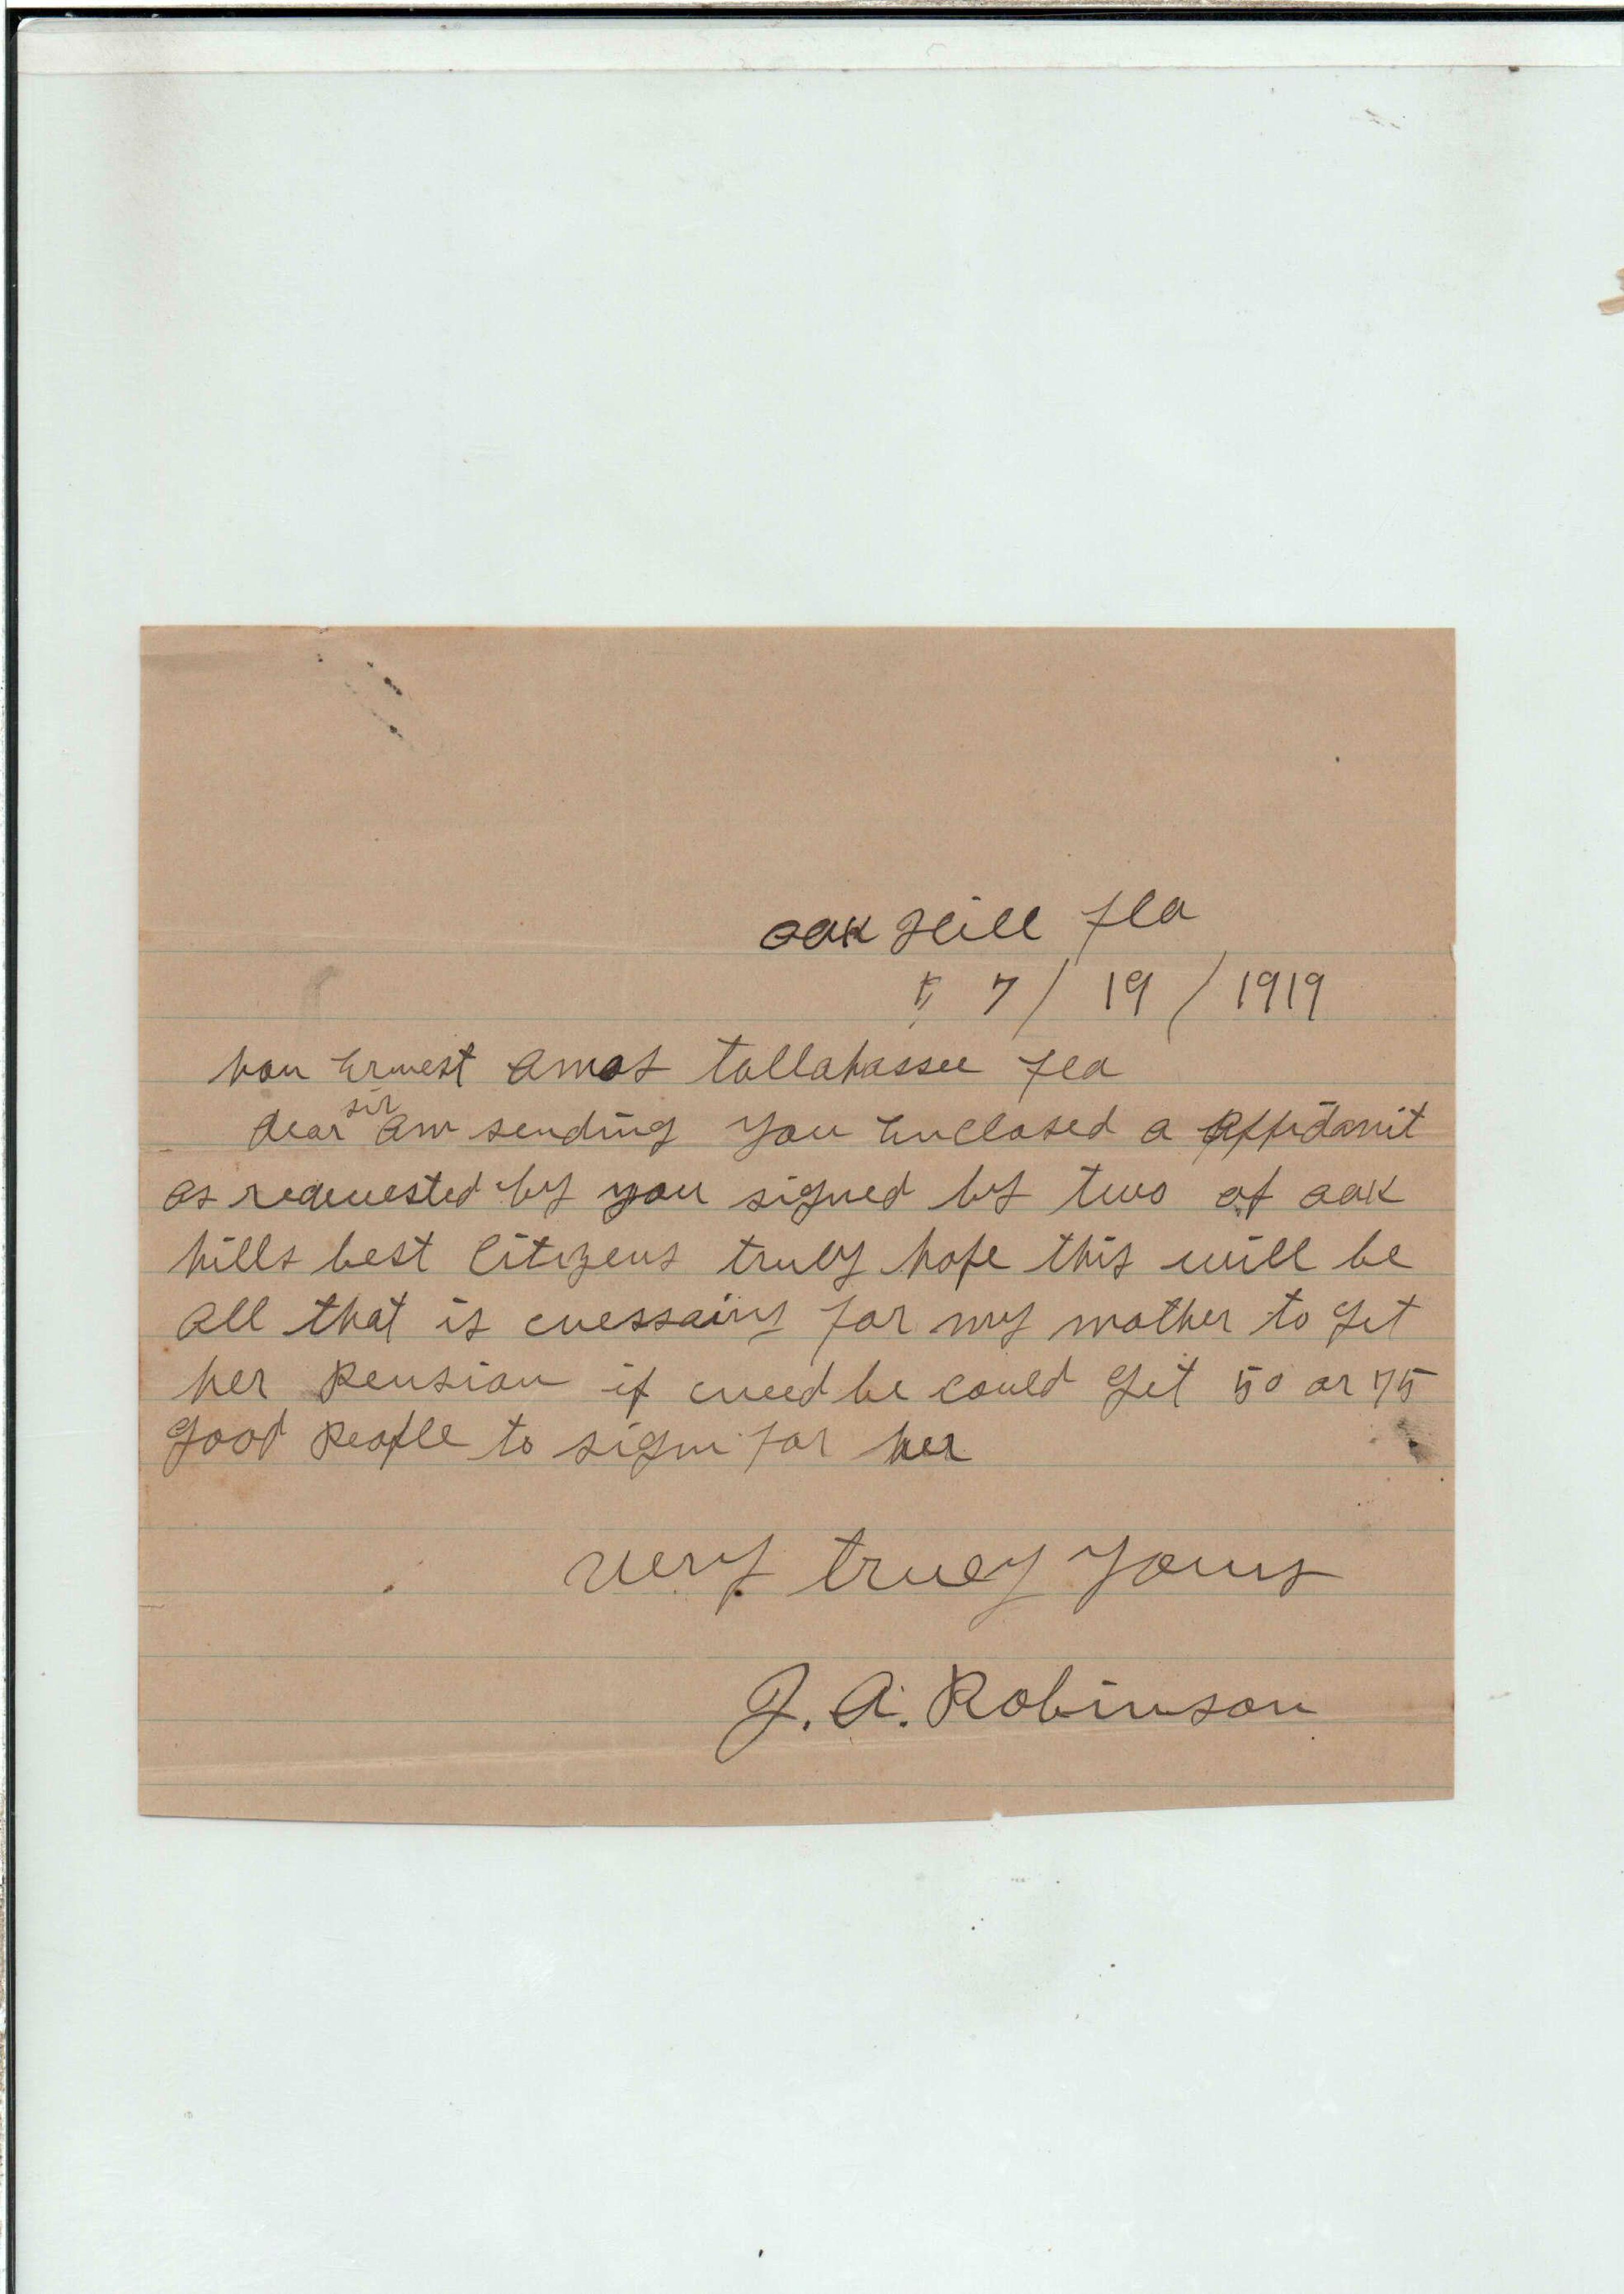 oak Hill Fla
7 / 19 / 1919
hon Ernest Amos tallahassee Fla
dear sir am sending you Enclosed a Affidavit
as requested by you signed by two of oak
hills best Citizens truly hope this will be
all that is cnessairy for my mother to get
her Pension if cneed be could get 50 or 75
good People to sign for her
very truey yours
J. A. Robinson